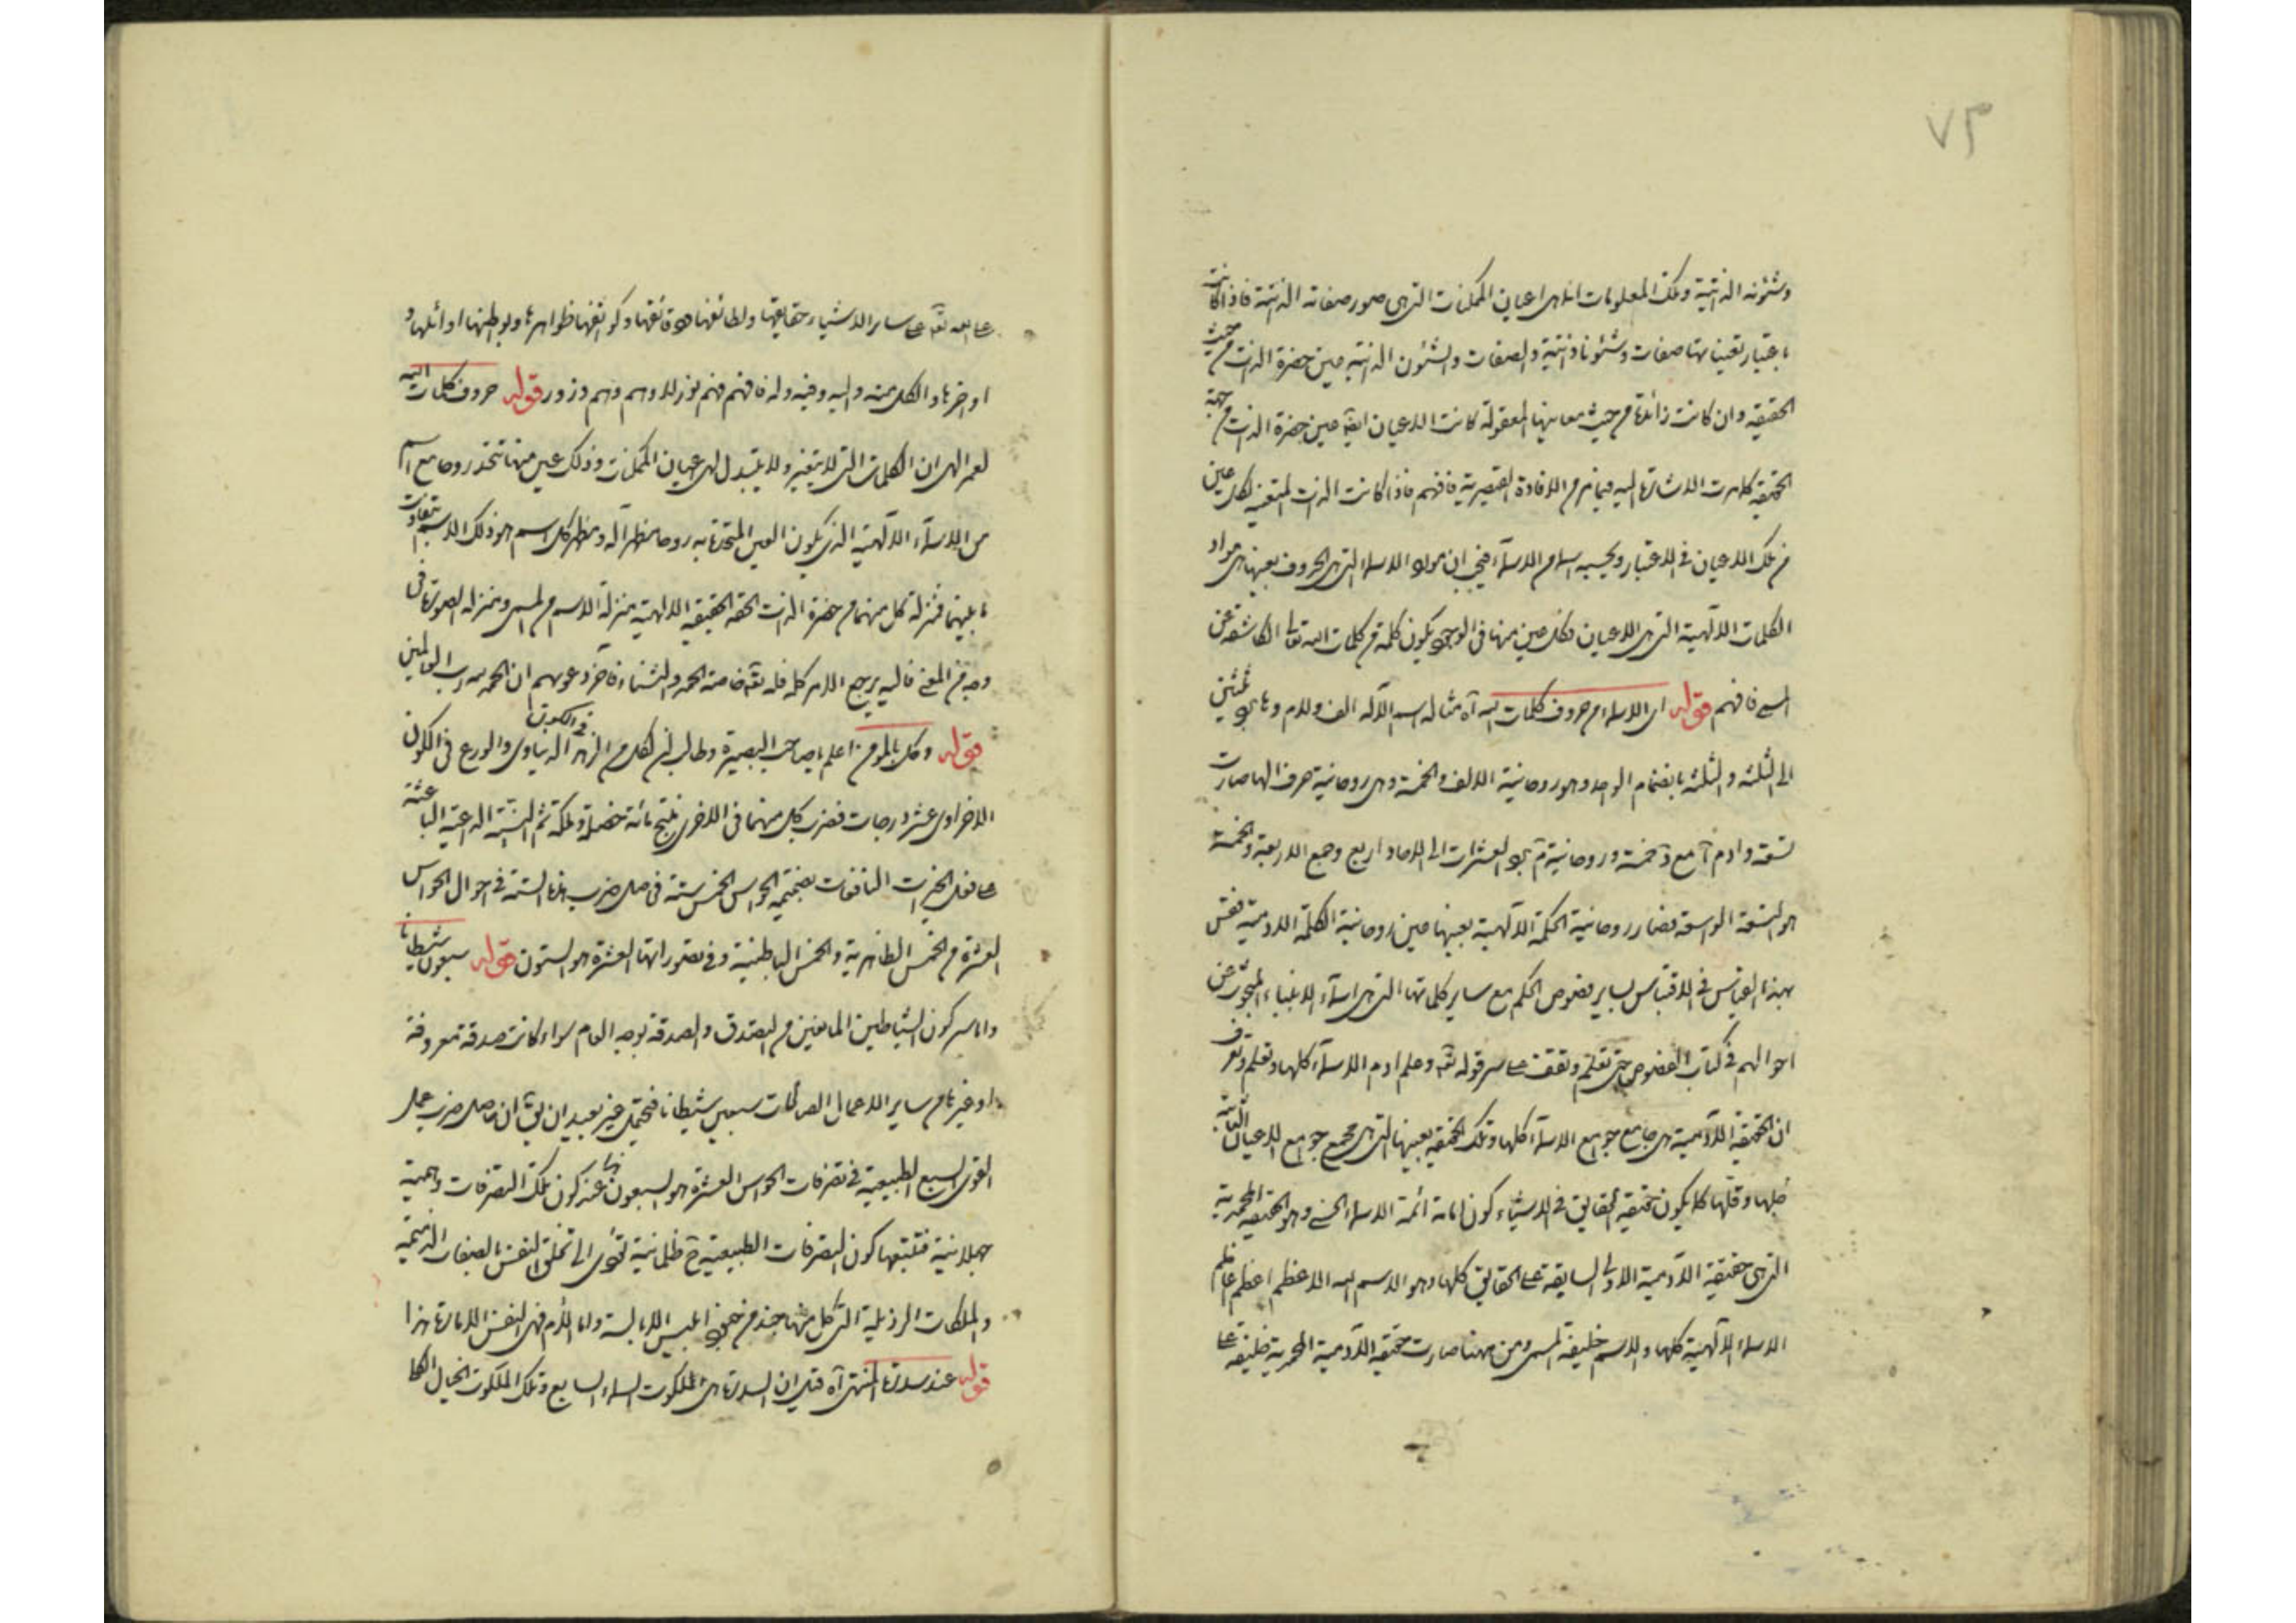 ٧٣
وشئونه الذاتية وتلك المعلومات انما هى اعيان الممكنات التى هى صور صفاته الذاتية فاذا كانت
باعتبار تعيناتها صفات وشئونا ذاتية والصفات والشئون الذاتية عين حضرة الذات من حيث
الحقيقة وان كانت زائدة من حيث معانيها المعقولة كانت الاعيان ايضا عين حضرة الذات من جهة
الحقيقة كما مرت الاشارة اليه فيما مر من الافادة القيصرية فافهم فاذا كانت الذات المتعينة لكل عين
من تلك الاعيان فى الاعتبار وبحسبه اسما من الاسماء فيجب ان مواد الاسماء التى هى الحروف بعينها هى مواد
الكلمات الالهية التى هى الاعيان وكل عين منها فى الوجود يكون كلمة من كلمات الله تعالى الكاشفة عن
المسمى فافهم قوله اى الاسماء من حروف كلمات الله آه مثاله اسم الاله الف ولام وها
الى الثلثة والثلثة بانضمام الواحد وهو روحانية الالف والخمسة وهى روحانية حرف الها صارت
تسعة وادم آ مع د خمسة وروحانية م العشرات الى الاحاد اربع وجمع الاربعة والخمسة
هو التسعة الواسعة فصار روحانية الحكمة الالهية بعينها عين روحانية الكلمة الادمية فقس
بهذا القياس فى الاقتباس لساير فصوص الحكم مع ساير كلماتها التى هى اسماء الانبياء المبحوث عن
احوالهم فى كتاب الفصوص حتى تعلم وتقف على سر قوله تعه وعلم ادم الاسماء كلها وتعلم وتعرف
ان الحقيقة الادمية هى جامع جوامع الاسماء كلها وتلك الحقيقة بعينها التى هى مجمع جوامع الاعيان الثابتة
جلها وقلها كما يكون حقيقة الحقايق فى الاشياء كون امامة ائمة الاسماء الحسنى وهو الحقيقة المحمدية
التى هى حقيقة الادمية الاولى السابقة على الحقايق كلها وهو الاسم الله الاعظم اعظم اعاظم
الاسماء الالهية كلها والاسم خليفة المسمى ومن ههنا صارت حقيقة الادمية المحمدية خليفة
الله تعه على ساير الاشياء حقايقها ولطائفها ورقائقها وكثائفها ظواهرها وبواطنها اوائلها و
اواخرها والكل منه واليه وفيه وله فافهم فهم نور لا وهم وهم وزور قوله حروف كلمات الله
لعمر الهى ان الكلمات التى لا يتغير ولا يتبدل هى اعيان الممكنات وذلك عين منها تتحد روحا مع اسم
من الاسماء الالهية الذى يكون العين المتحدة به روحا مظهرا له ومظهر كل اسم هو ذلك الاسم بتفاوت
ما بينهما فمنزلة كل منهما من حضرة الذات الحقة الحقيقة الالهية بمنزلة الاسم من المسمى وبمنزلة الصورة فى
وجه من المعنى فاليه يرجع الامر كله فله تعه خاصة الحمد والثناء فاخر دعويهم ان الحمد لله رب العالمين
قوله وكل بالمؤمن اعلم يا صاحب البصيرة وطالب لكل من الزهد الدنياوى والورع فى الكون
الاخراوى عشر درجات فضرب كل منهما فى الاخرى ينتج مائة خصلة وملكة ثم النية الداعية الباعثة
على فعل الخيرات النافعات بضميمة الحواس الخمس ستة فى ضرب هذه الستة فى احوال الحواس
العشرة من الخمس الظاهرية والخمس الباطنية وفى تصوراتها العشرة هو الستون قوله سبعون شيطانا
واما سر كون الشياطين المانعين من التصدق والصدقة بوجه العام سواء كانت صدقة معروفة
او غيرها من ساير الاعمال الصالحات سبعين شيطانا فيحتمل غير بعيد ان يق ان حاصل ضرب عمل
القوى السبع الطبيعية فى تصرفات الحواس العشرة هو السبعون عند كون تلك التصرفات وهمية
جهلانية فتبتها كون التصرفات الطبيعية ح ظلمانية تؤدى الى تخلق النفس بالصفات الذميمة
والملكات الرذيلة التى كل منها جند من جنود ابليس الابالسة واما الام فهى النفس الامارة هذا
قوله عند سدرة المنتهى آه قيل ان السدرة هى الملكوت السماء السابع وتلك الملكوت الخيال الكل